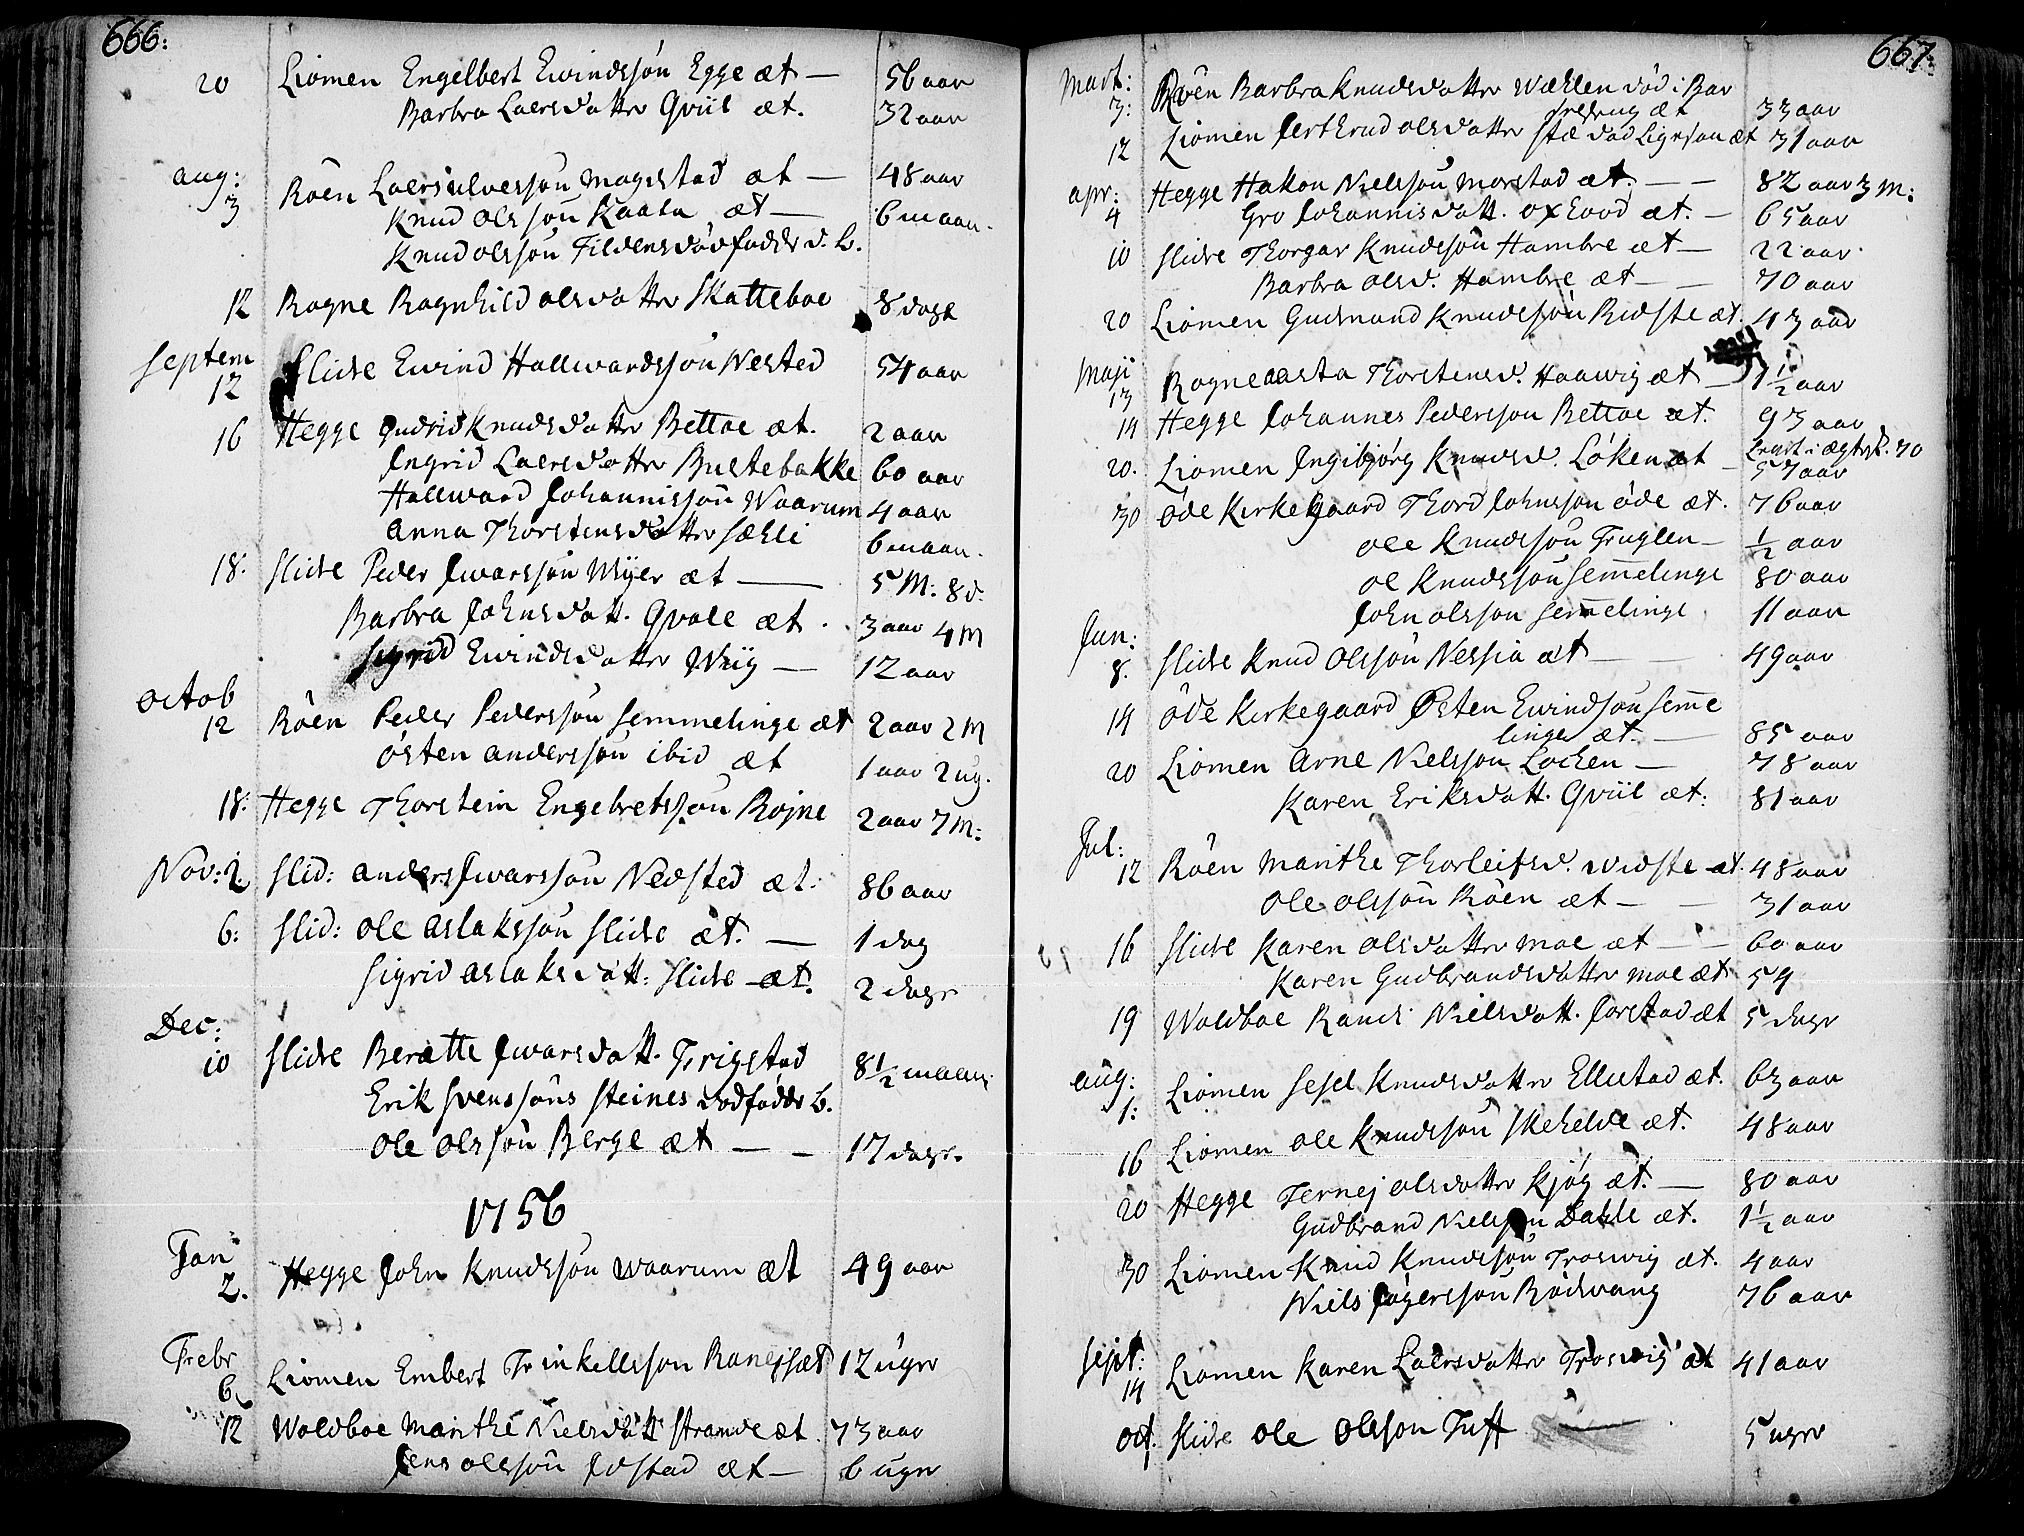 666:
20 Liomen Engelbert Ewindssøn Egge æt — 56 aar
Barbra Laersdatter Qviil æt. 32 aar
aug:
3 Röen Laers ulverssøn magistad æt — 48 aar
Knud olssøn Kaata æt — 6 maan.
Knud olssøn Fildens dødfødde d. b.
12 Rogne Ragnhild olsdatter Skatteboe 8 dage
Septem
12 Slidre Ewind Hallwardssøn Nersted 54 aar
16 Hegge gudrid Knudsdatter Bettoe æt. 2 aar
Ingrid Laersdatter Bustebakke 60 aar
Hallward Johannissøn Waarum 4 aar
Anna Thorstensdatter Sæhli 6 maan.
18: Slidre Peder Iwarssøn Wiyer æt — 5 M: 8 d.
Barbra Johnsdatt. Qvale æt. 3 aar 4 M
Sigrid Ewindsdatter Wiiy — 12 aar
octob
12 Röen Peder Pederssøn Semmelinge æt 2 aar 2 M
östen anderssøn ibid æt 1 aar 2 ug.
18: Hegge Thorstein Engebretssøn Rojne 2 aar 7 M:
Nov: 2. Slid: anders Iwarssøn Nedsted æt: 86 aar
6: Slid: ole aslakssøn Slidre æt. — 1 dag
Sigrid aslaksdatt: Slidre æt. 2 dage
Dec:
10 Slidre Beratte Iwarsdatt. Frigstad 8½ maan:
Erik Svenssøns Steines dødfødde b.
ole olssøn Berge æt — — 17 dage.
1756
Jan
2. Hegge John Knudssøn Waarum æt 49 aar
Febr
6 Liomen Embert Frinkellssøn Ranejsæt 12 uger
12 Woldboe Marithe Nielsdatt Strande æt. 73 aar
Jens olssøn Jostad æt — 6 uger
667.
Mart:
3: Röen Barbra Knudsdatter Wæhlen död i Bar
æt 33 aar
12 Liomen olsdatter æt 31 aar
apr:
4 Hegge Hakon Nielssøn Morstad æt. — — 82 aar 3 M:
Gro Johannisdatt. oxhovd æt. — 65 aar
10 Slidre Thorgar Knudssøn Hambre æt — 22 aar
Barbra olsd. Hambre æt — — 70 aar
20 Liomen Gudmund Knudssøn Ridste æt. 43 aar
Maji
13 Rogne aasta Thorstensd. Haawig æt — 1½ aar
14 Hegge Johannes Pederssøn Bettoe æt. 93 aar
20. Liomen Ingibjørg Knudsd. Löken æt — 57 aar
30 öde Kirkegaard Thord Johnssøn öde æt. 76 aar
ole Knudssøn Fruglen — ½ aar
ol Knudssøn Sem̅elinge 80 aar
John olssøn Sem̅elinge 11 aar
Jun:
8. Slidre Knud olssøn Nersia æt — — 49 aar
14 öde Kirkegaard Østen Ewindssøn Sem̅e
linge æt. — 85 aar
20 Liomen Arne Nielssøn Lochen — 78 aar
Karen Eriksdatt. Qviil æt: 81 aar
Jul:
12 Röen Marithe Thorleifsd. widste æt. 48 aar
ole olssøn Röen æt — — 31 aar
16 Slidre Karen olsdatter moe æt — — 60 aar
Karen Gudbrandsdatter moe æt 54
19 Woldboe Randi Nielsdatt. Jorstad æt 5 dage
aug:
1: Liomen Sesel Knudsdatter Ellistad æt. 63 aar
16 Liomen ole Knudssøn Skehelde æt. 48 aar
20 Hegge Ternej olsdatter Kjøg æt. — 80 aar
Gudbrand Nielssøn Dahle æt. 1½ aar
30 Liomen Knud Knudssøn Troswig æt. 4 aar
Niels Jögerssøn Rödsvang 76 aar
Sept:
14 Liomen Karen Laersdatter Troswig æt 41 aar
oct. Slidre ole olsson Tuft — 5 uger